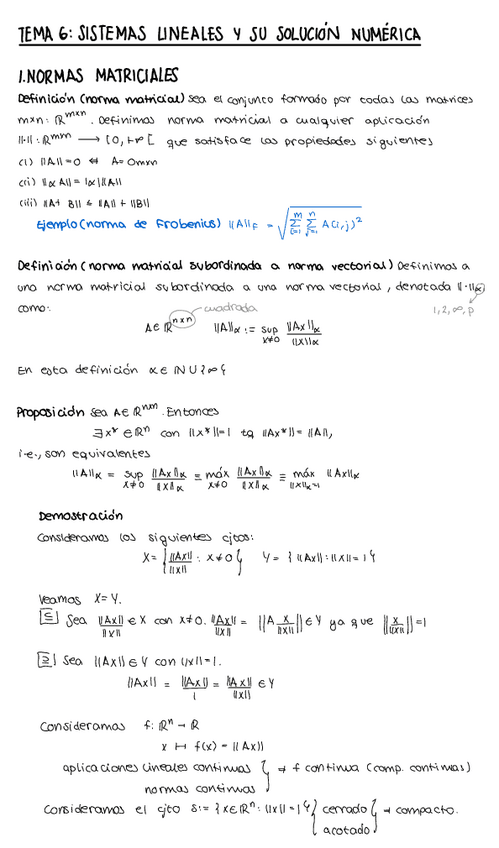 TEMA 6: SISTEMAS LINEALES Y SU SOLUCIÓN NUMÉRICA
1. NORMAS MATRICIALES
Definición (norma matricial) Sea el conjunto formado por todas las matrices
m×n: ℝ^{m×n}. Definimos norma matricial a cualquier aplicación
||·||: ℝ^{m×n} → [0,+∞[ que satisface las propiedades siguientes
(i) ||A||=0 ⇔ A=0m×n
(ii) ||αA|| = |α| ||A||
(iii) ||A+B|| ≤ ||A|| + ||B||
Ejemplo (norma de Frobenius) ||A||_F = √(∑_{i=1}^{m} ∑_{j=1}^{n} A(i,j)²)
Definición (norma matricial subordinada a norma vectorial) Definimos a
una norma matricial subordinada a una norma vectorial, denotada ||·||α
como:
cuadrada
1,2,∞,p
A∈ℝ^{n×n} ||A||α := sup_{x≠0} ||Ax||α / ||x||α
En esta definición α∈ℕ∪{∞}
Proposición Sea A∈ℝ^{n×n}. Entonces
∃x* ∈ℝⁿ con ||x*||=1 tq ||Ax*|| = ||A||,
i.e., son equivalentes
||A||α = sup_{x≠0} ||Ax||α / ||x||α = máx_{x≠0} ||Ax||α / ||x||α = máx_{||x||α=1} ||Ax||α
Demostración
Consideramos los siguientes cjtos:
X = { ||Ax|| / ||x|| : x≠0 } Y = { ||Ax|| : ||x||=1 }
Veamos X=Y.
⊆| Sea ||Ax||/||x|| ∈ X con x≠0. ||Ax||/||x|| = ||A x/||x|| || ∈ Y ya que || x/||x|| || = 1
⊇| Sea ||Ax|| ∈ Y con ||x||=1.
||Ax|| = ||Ax||/1 = ||Ax||/||x|| ∈ Y
Consideramos f: ℝⁿ → ℝ
x ↦ f(x) = ||Ax||
aplicaciones lineales continuas } ⇒ f continua (comp. continuas)
normas continuas
Consideramos el cjto S:= {x∈ℝⁿ: ||x||=1} { cerrado } ⇒ compacto.
acotado